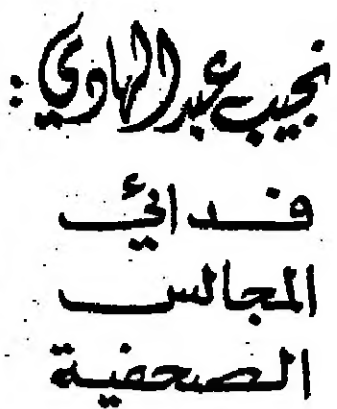 نجيب عبد الهادي :
فدائي
المجالس
الصحفية